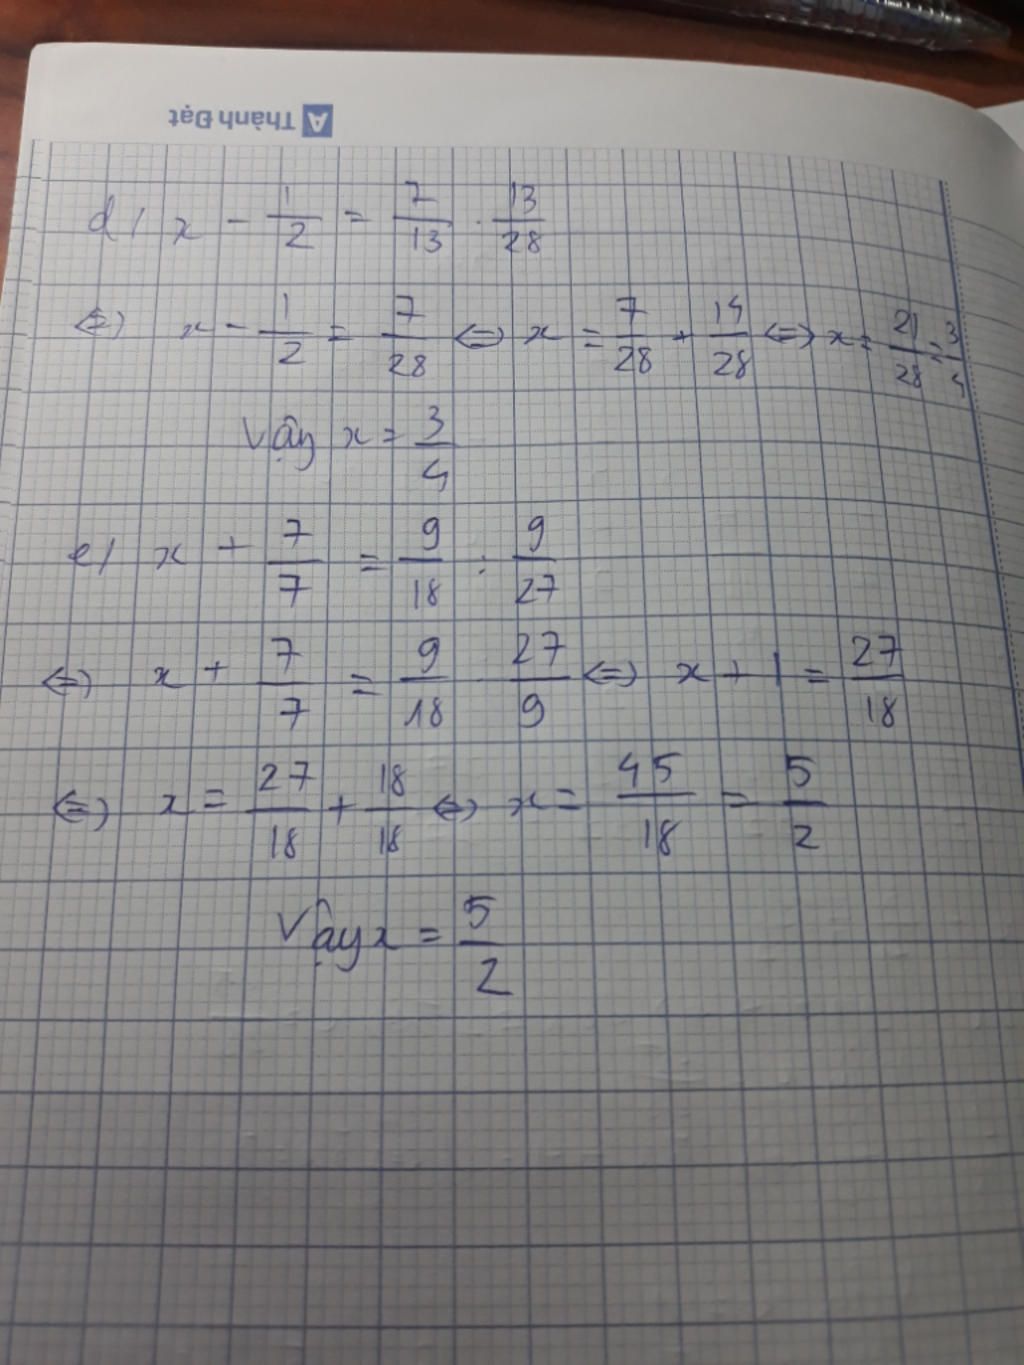 A Thành Đạt
d/ x - 1/2 = 7/13 . 13/28
⇔ x - 1/2 = 7/28 ⇔ x = 7/28 + 14/28 ⇔ x = 21/28 = 3/4
Vậy x = 3/4
e/ x + 7/7 = 9/18 : 9/27
⇔ x + 7/7 = 9/18 . 27/9 ⇔ x + 1 = 27/18
⇔ x = 27/18 + 18/18 ⇔ x = 45/18 = 5/2
Vậy x = 5/2